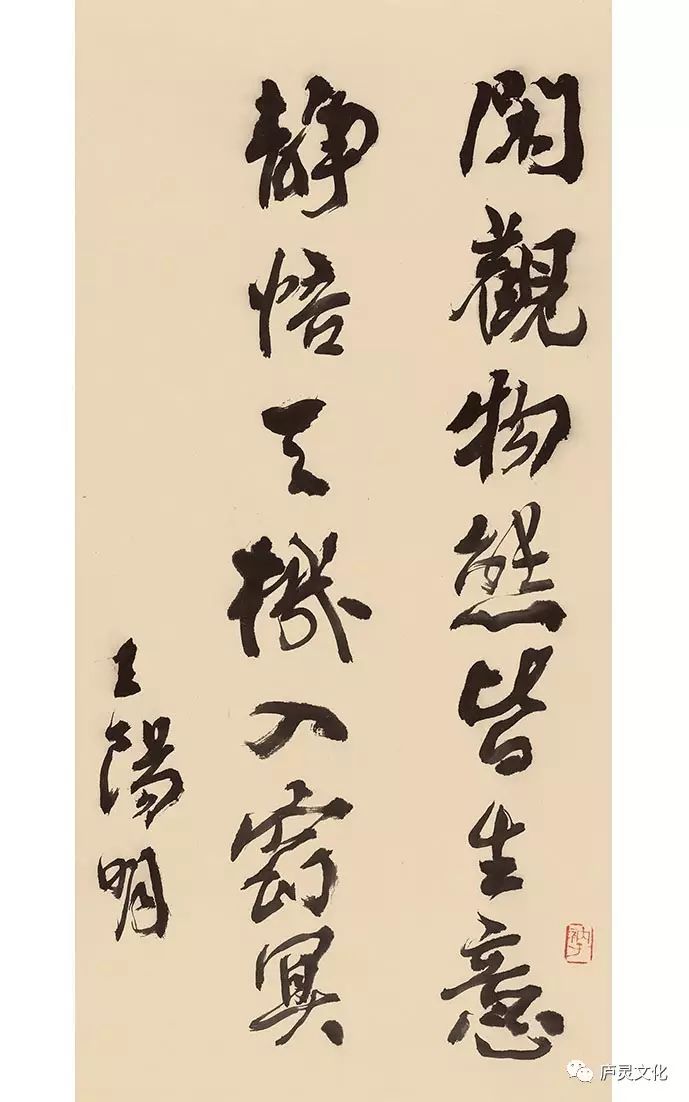 閑觀物態皆生意
静悟天機入窈冥
王陽明
庐灵文化